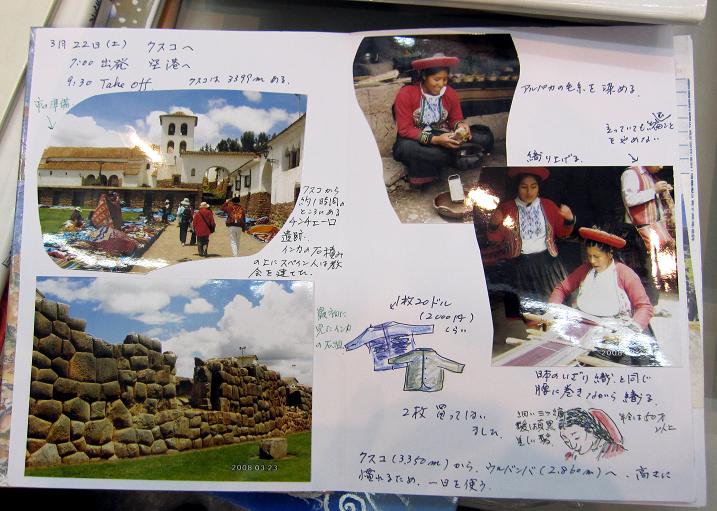 3月22日(土) クスコへ
7:00 出発 空港へ
9:30 Take off クスコは3399mある。
の準備
クスコから
約1時間の
ところにある
チンチェーロ
遺跡。
インカの石積み
の上にスペイン人は教
会を建てた。
最初に
見たインカ
の石垣
アルパカの毛糸を染める。
立っていても
を止めない
織り上げる。
1枚20ドル
(2000円)
くらい
2枚買ってしまい
ました。
日本のいざり織と同じ
腰に巻きながら織る。
細い三ツ編
年令は50才
以上
クスコ(3,350m)から、ウルバンバ(2,860m)へ、高さに
慣れるため、一日を使う。
2008.03.23
2008